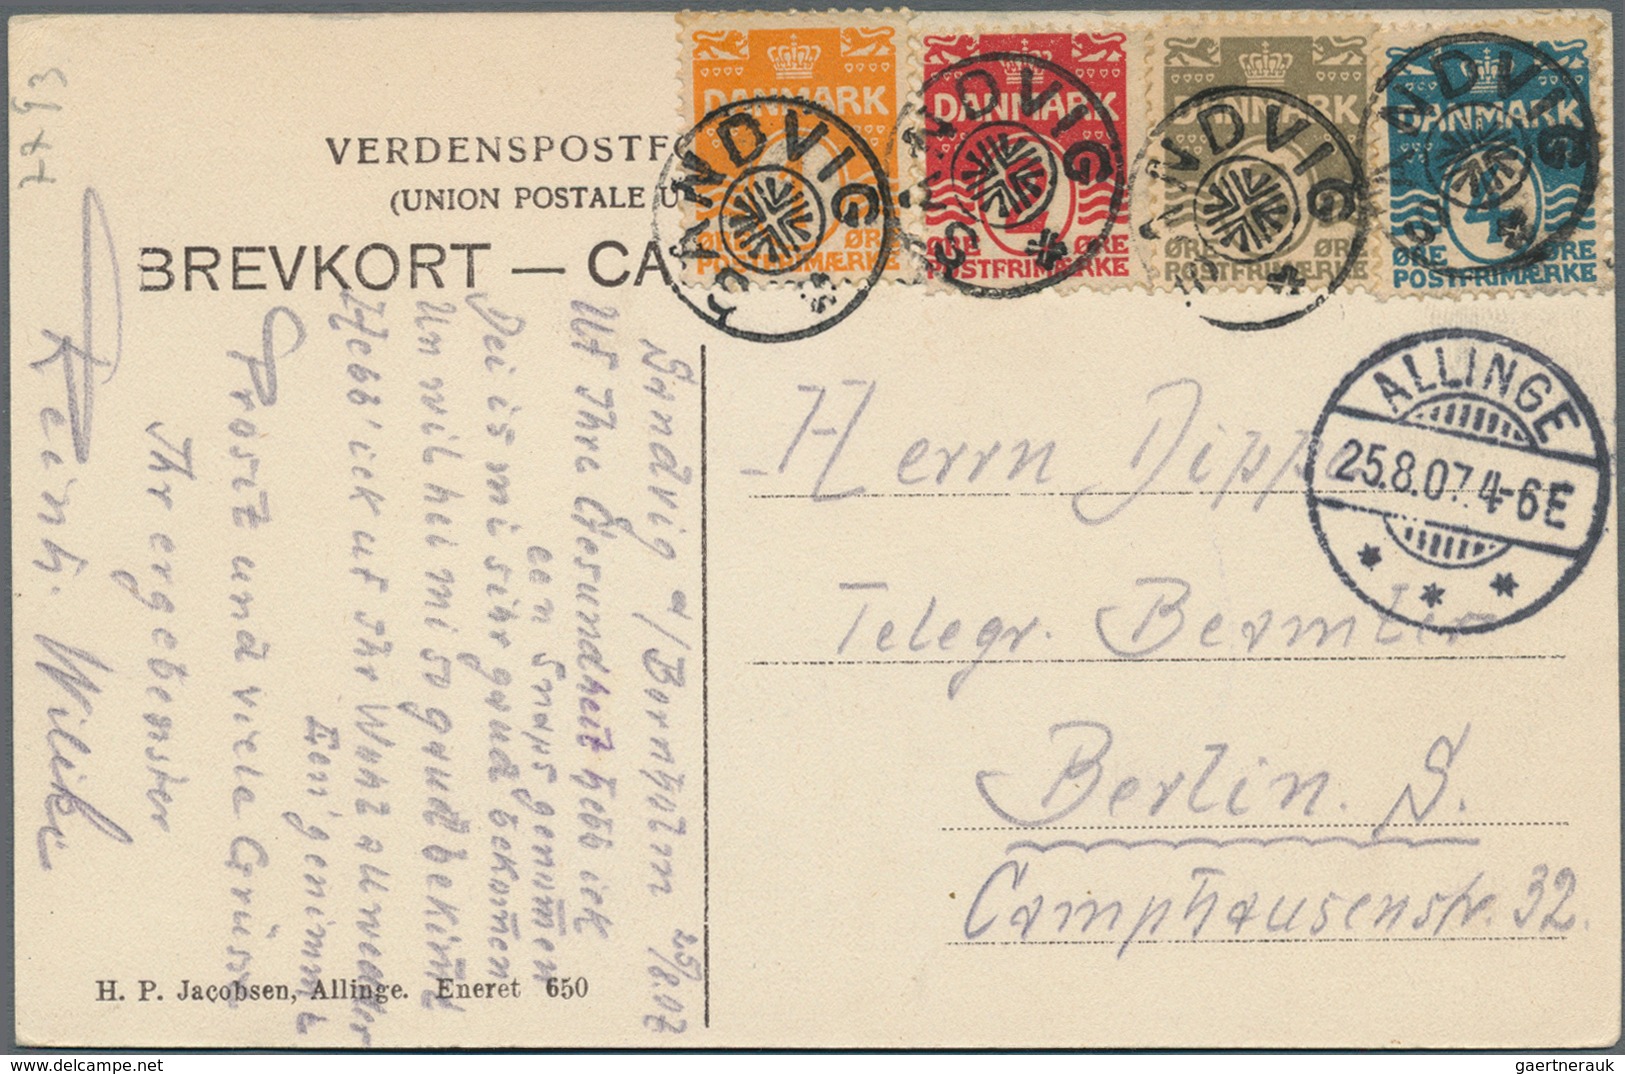 7×93
VERDENSPOSTF
(UNION POSTALE U
BREVKORT — CA
DANMARK
ØRE ØRE
POSTFRIMÆRKE
DANMARK
2
ØRE ØRE
POSTFRIMÆRKE
DANMARK
ØRE ØRE
POSTFRIMÆRKE
DANMARK
4
ØRE ØRE
POSTFRIMÆRKE
SANDVIG
SANDVIG
SANDVIG
SANDVIG
ALLINGE
25.8.07 4-6E
Sandvig a/Bornholm 25/8.07
Uf Ihre Gesundheit hebb ick
een Snaps genummen
Dei is mi sihr gaud bekommen
Un wil hei mi so gaud bekimmt
Hebb' ick uf Ihr Wohl allwedder
Een' genimmt
Prosit und viele Grüsse
Ihr ergebenster
Reinh.
Herrn Dipp
Telegr. Beamter
Berlin. S.
Camphausenstr. 32.
H. P. Jacobsen, Allinge. Eneret 650
www.delcampe.net
gaertnerauk